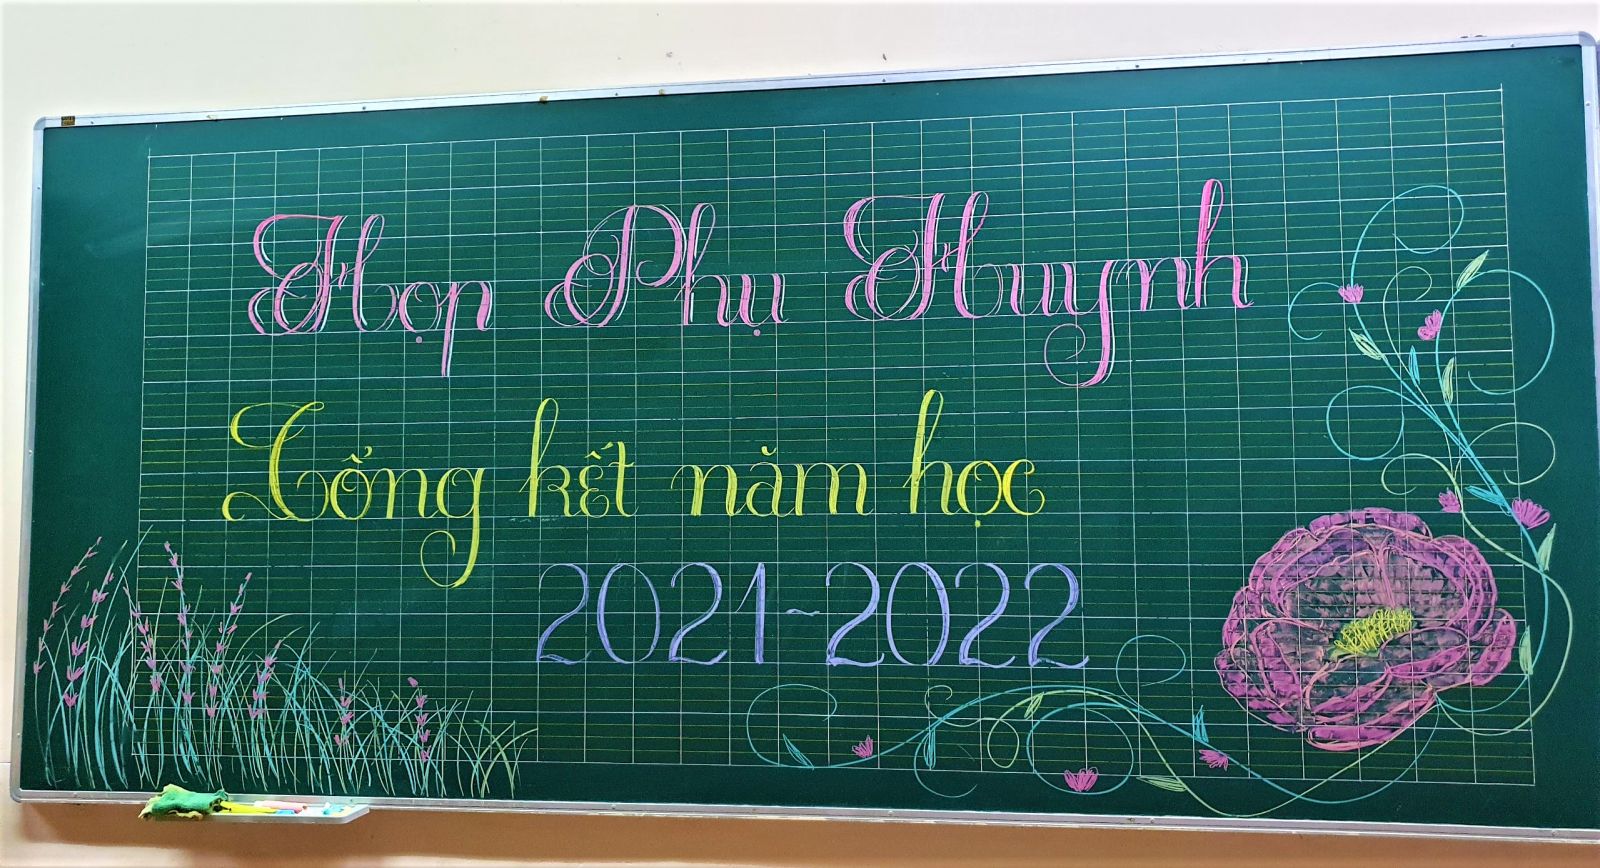 Họp Phụ Huynh
Tổng kết năm học
2021-2022